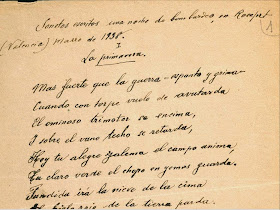 Sonetos escritos una noche de bombardeo en Rocafort
(Valencia) Marzo de 1938.
1
I
La primavera.
Mas fuerte que la guerra – espanto y grima –
Cuando con torpe vuelo de avutarda
El ominoso trimotor se encima,
I sobre el vano techo se retarda,
Hoy tu alegre zalema el campo anima,
Tu claro verde el chopo en yemas guarda.
Fundida irá la nieve de la cima
de la tierra parda.